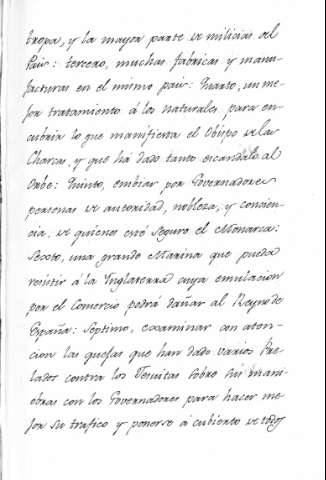 tropa, y la mayor parte de milicias del
Pais: tercero, muchas fabricas y manu-
facturas en el mismo pais: Quarto, un me-
jor tratamiento á los naturales, para en-
cubrir lo que manifiesta el Obispo de las
Charcas, y que há dado tanto escandalo al
Orbe: Quinto, embiar por Governadores
personas de autoridad, nobleza, y concien-
cia, de quienes esté seguro el Monarca:
Sexto, una grande Marina que pueda
resistir á la Ynglaterra cuya emulacion
por el Comercio podrá dañar al Reyno de
España: Septimo, examinar con aten-
cion las quejas que han dado varios Pre-
lados contra los Jesuitas sobre sus mani-
obras con los Governadores para hacer me-
jor su trafico y ponerse á cubierto de todos